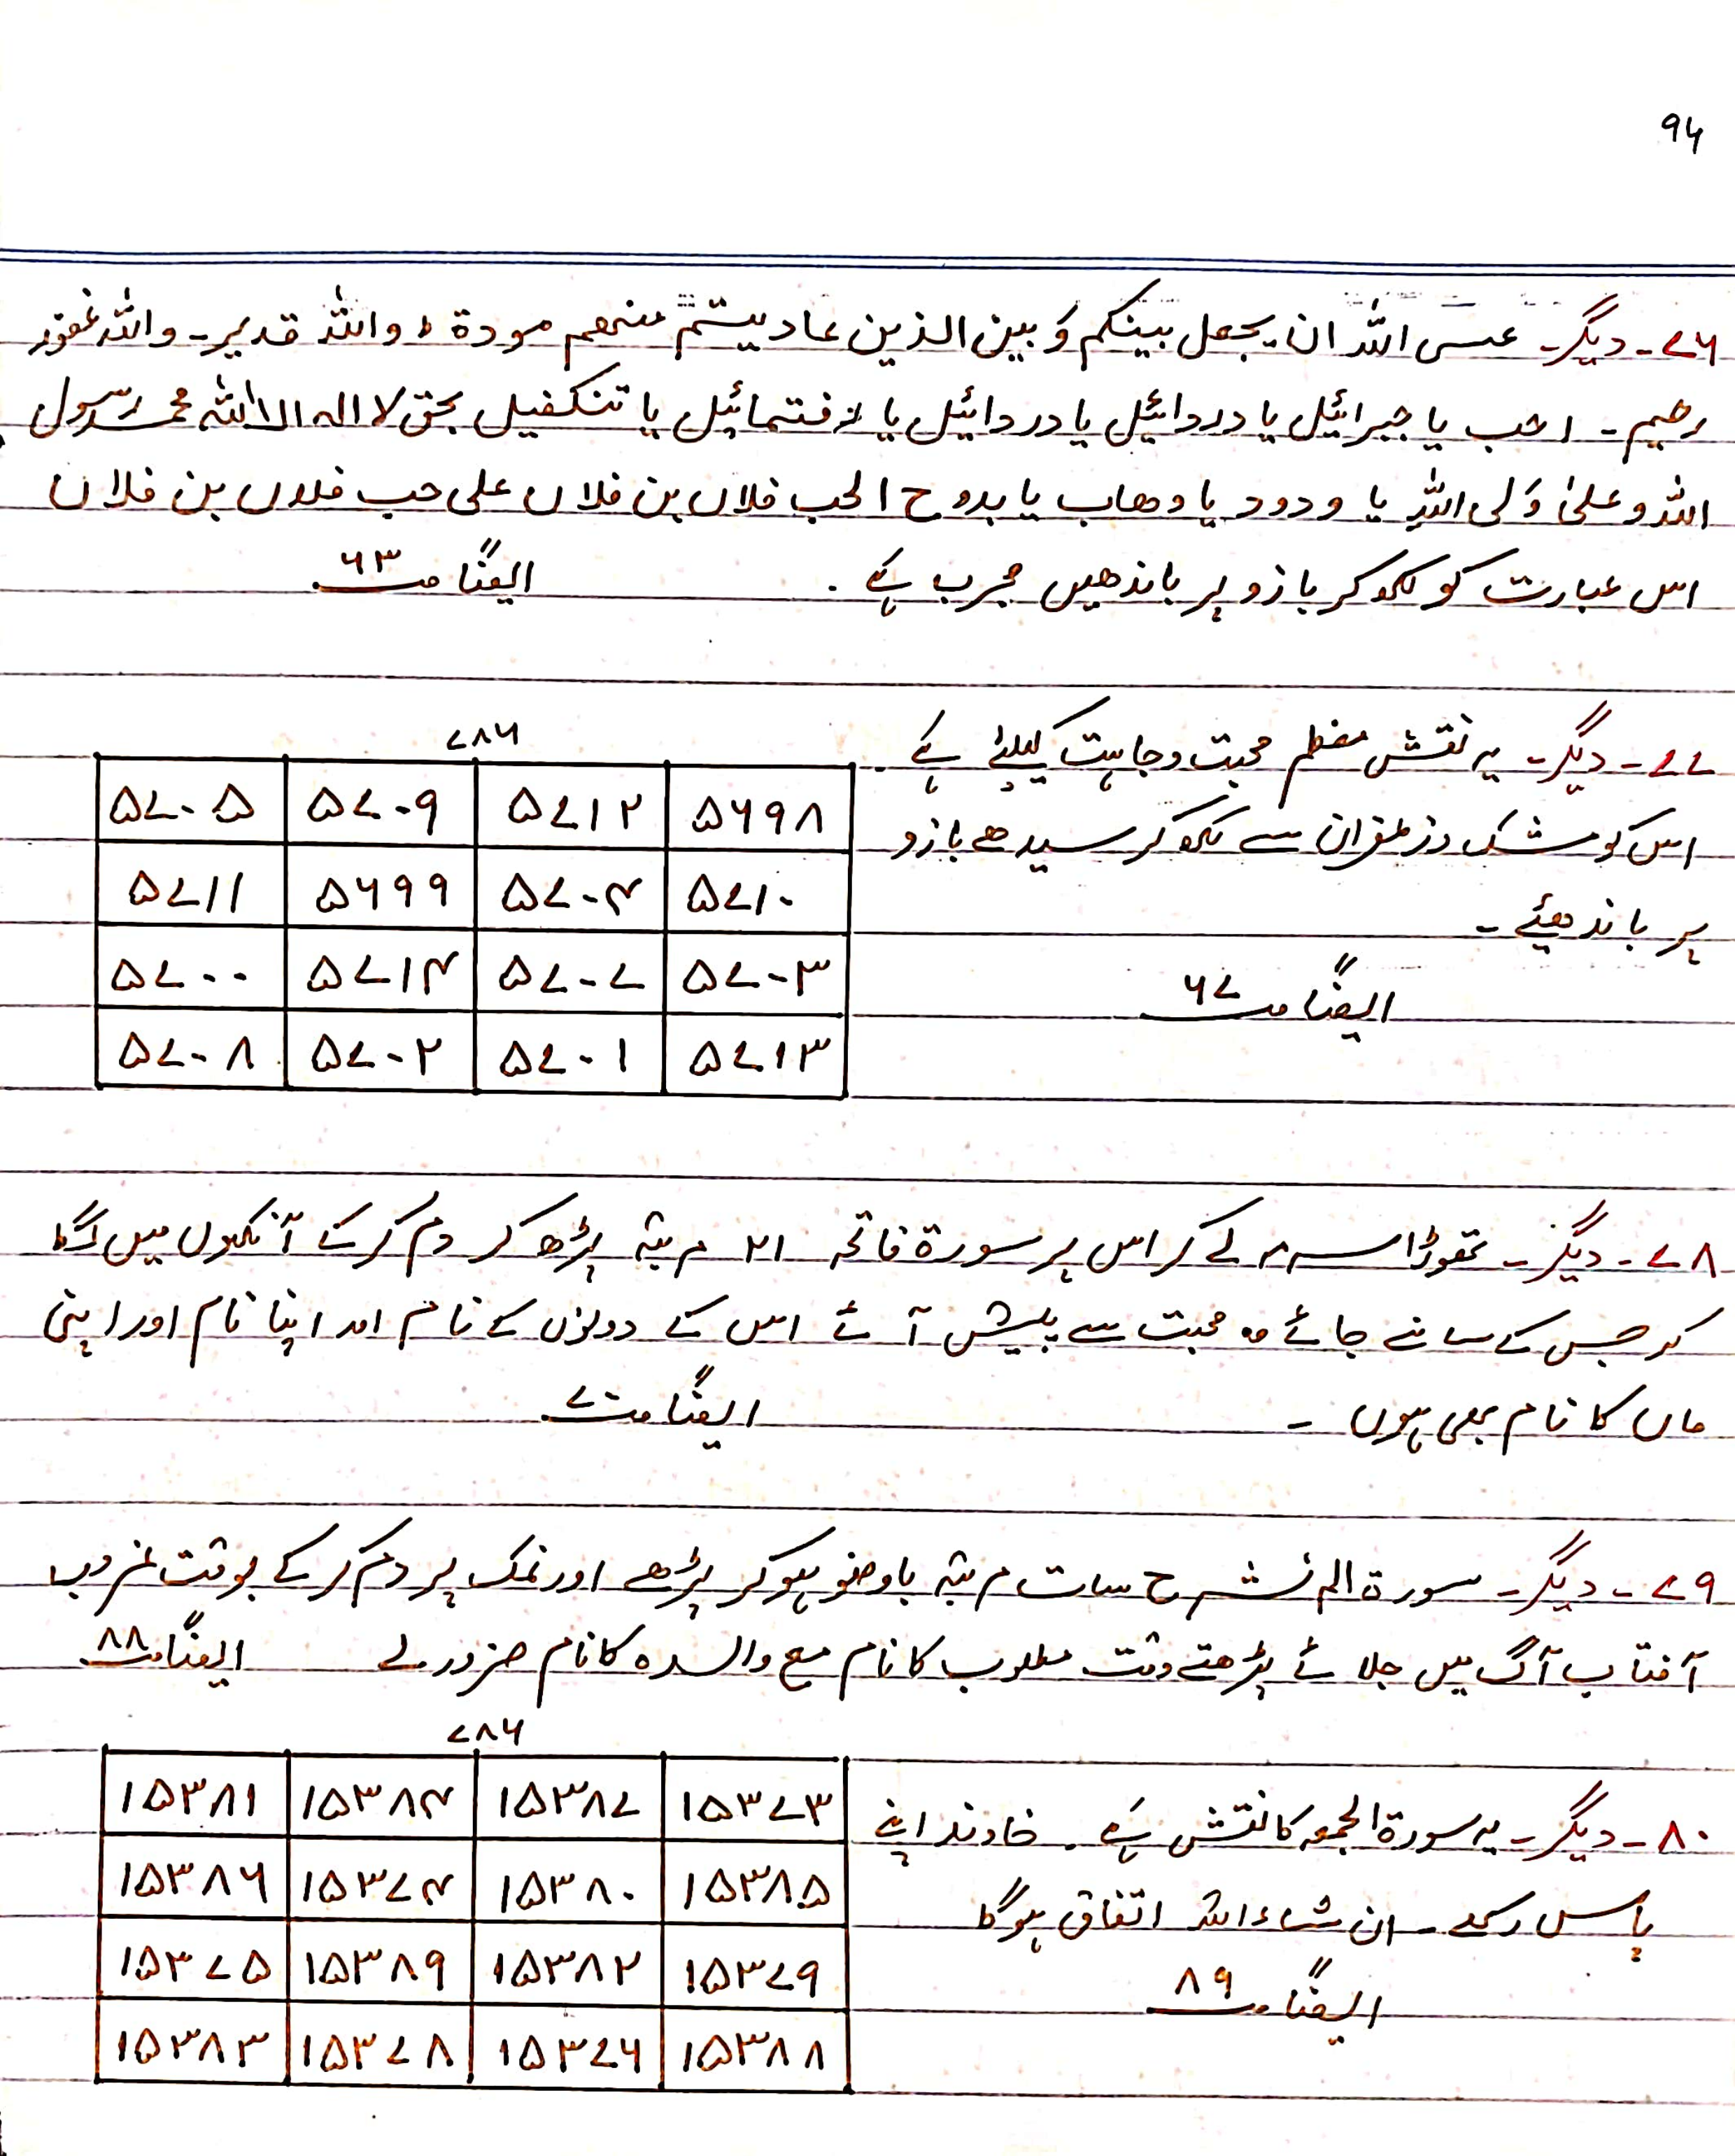 ۹۶
۷۶۔ دیگر۔ عسی اللہ ان یجعل بینکم وَ بین الذین عادیتم منھم مودة ط واللہ قدیر۔ واللہ غفور
رحیم۔ احب یا جبرائیل یا دردائیل یا دردائیل یا رفتمائیل یا تنکفیل بحق لا الہ الا اللہ محمد رسول
اللہ و علیٰ وَلی اللہِ یا ودود یا وھاب یا بدوح الحب فلاں بن فلاں علی حب فلاں بن فلاں
اس عبارت کو لکھ کر بازو پر باندھیں مجرب ہے ۔ ایضاً صـ ۶۳
۷۷۔ دیگر۔ یہ نقش معظم محبت و چاہت کیلئے ہے۔
اس کو مشک و زعفران سے لکھ کر سیدھے بازو
پر باندھئے۔
ایضاً صـ ۶۷
۷۸۶
۵۶۹۸ ۵۷۱۲ ۵۷۰۹ ۵۷۰۵
۵۷۱۰ ۵۷۰۴ ۵۶۹۹ ۵۷۱۱
۵۷۰۳ ۵۷۰۷ ۵۷۱۴ ۵۷۰۰
۵۷۱۳ ۵۷۰۱ ۵۷۰۲ ۵۷۰۸
۷۸۔ دیگر۔ تھوڑا سرمہ لے کر اس پر سورة فاتحہ ۲۱ مرتبہ پڑھ کر دم کرکے آنکھوں میں لگا
کر جس کے سامنے جائے وہ محبت سے پیش آئے اس کے دونوں کے نام اور اپنا نام اور اپنی
ماں کا نام بھی ہوں۔ ایضاً صـ ۷
۷۹۔ دیگر۔ سورة الم نشرح سات مرتبہ باوضو ہوکر پڑھے اور نمک پر دم کرکے بوقت غروب
آفتاب آگ میں جلائے پڑھتے وقت مطلوب کا نام مع والدہ کا نام ضرور لے ایضاً صـ ۸۸
۸۰۔ دیگر۔ یہ سورة الجمعہ کا نقش ہے۔ خاوند اپنے
پاس رکھے۔ ان شاءاللہ اتفاق ہوگا
ایضاً صـ ۸۹
۷۸۶
۱۵۳۷۳ ۱۵۳۸۷ ۱۵۳۸۴ ۱۵۳۸۱
۱۵۳۸۵ ۱۵۳۸۰ ۱۵۳۷۴ ۱۵۳۸۶
۱۵۳۷۹ ۱۵۳۸۲ ۱۵۳۸۹ ۱۵۳۷۵
۱۵۳۸۸ ۱۵۳۷۶ ۱۵۳۷۸ ۱۵۳۸۳